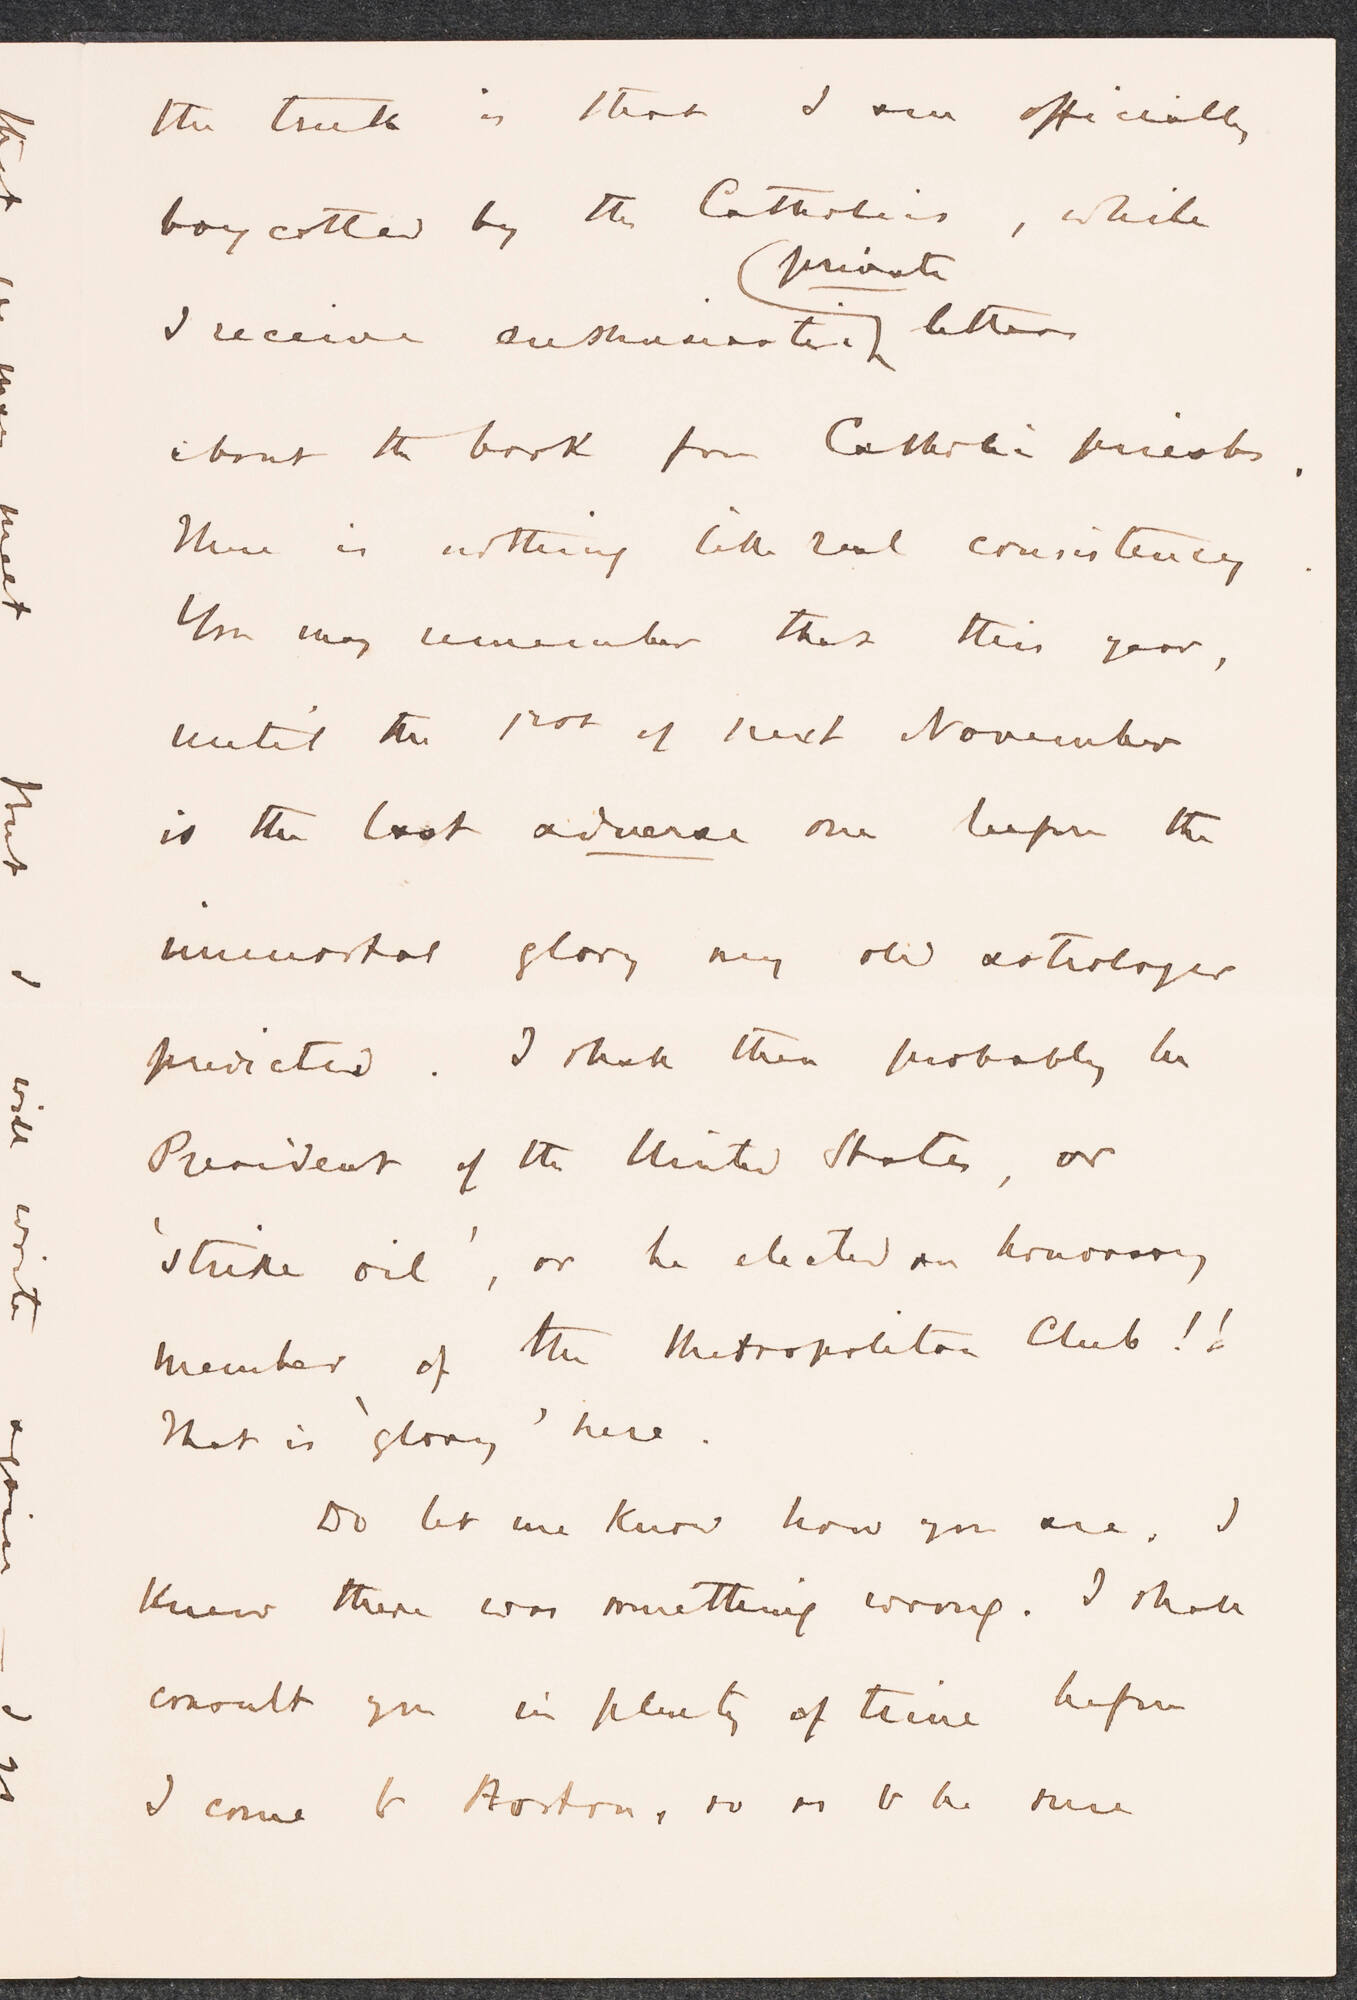 the truth is that I am officially
boycotted by the Catholics, while
private
I receive enthusiastic letters
about the book from Catholic priests.
There is nothing like real consistency.
You may remember that this year,
until the 1st of next November
is the last adverse one before the
immortal glory my old astrologer
predicted. I shall then probably be
President of the United States, or
'strike oil', or be elected an honorary
member of the Metropolitan Club!!
That is 'glory' here.
Do let me know how you are. I
knew there was something wrong. I shall
consult you in plenty of time before
I come to Boston, so as to be sure
that we may meet
But I will write again — I go